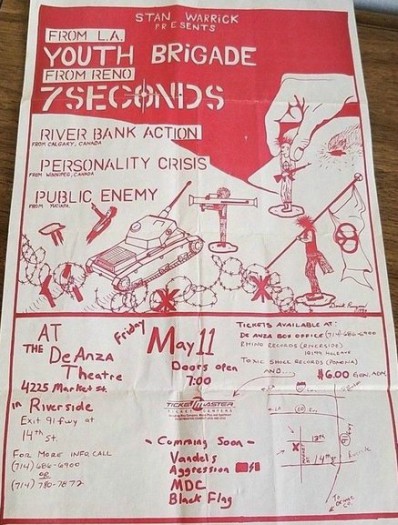 STAN WARRICK
PRESENTS
FROM L.A.
YOUTH BRIGADE
FROM RENO
7SECONDS
RIVER BANK ACTION
FROM CALGARY, CANADA
PERSONALITY CRISIS
FROM WINNIPEG, CANADA
PUBLIC ENEMY
FROM YUCAIPA
AT
THE DeAnza
Theatre
4225 Market St.
in Riverside
Exit 91 fwy at
14th St.
FOR MORE INFO, CALL
(714) 686-6900
OR
(714) 780-7872
Friday
May 11
Doors open
7:00
TICKETMASTER
TICKET CENTERS
- Comming Soon -
Vandals
Aggression
MDC
Black Flag
TICKETS AVAILABLE AT:
DE ANZA BOX OFFICE (714) 686-6900
RECORDS (RIVERSIDE)
TOXIC SHOCK RECORDS (POMONA)
AND....
$6.00 GEN. ADM.
14th
TO